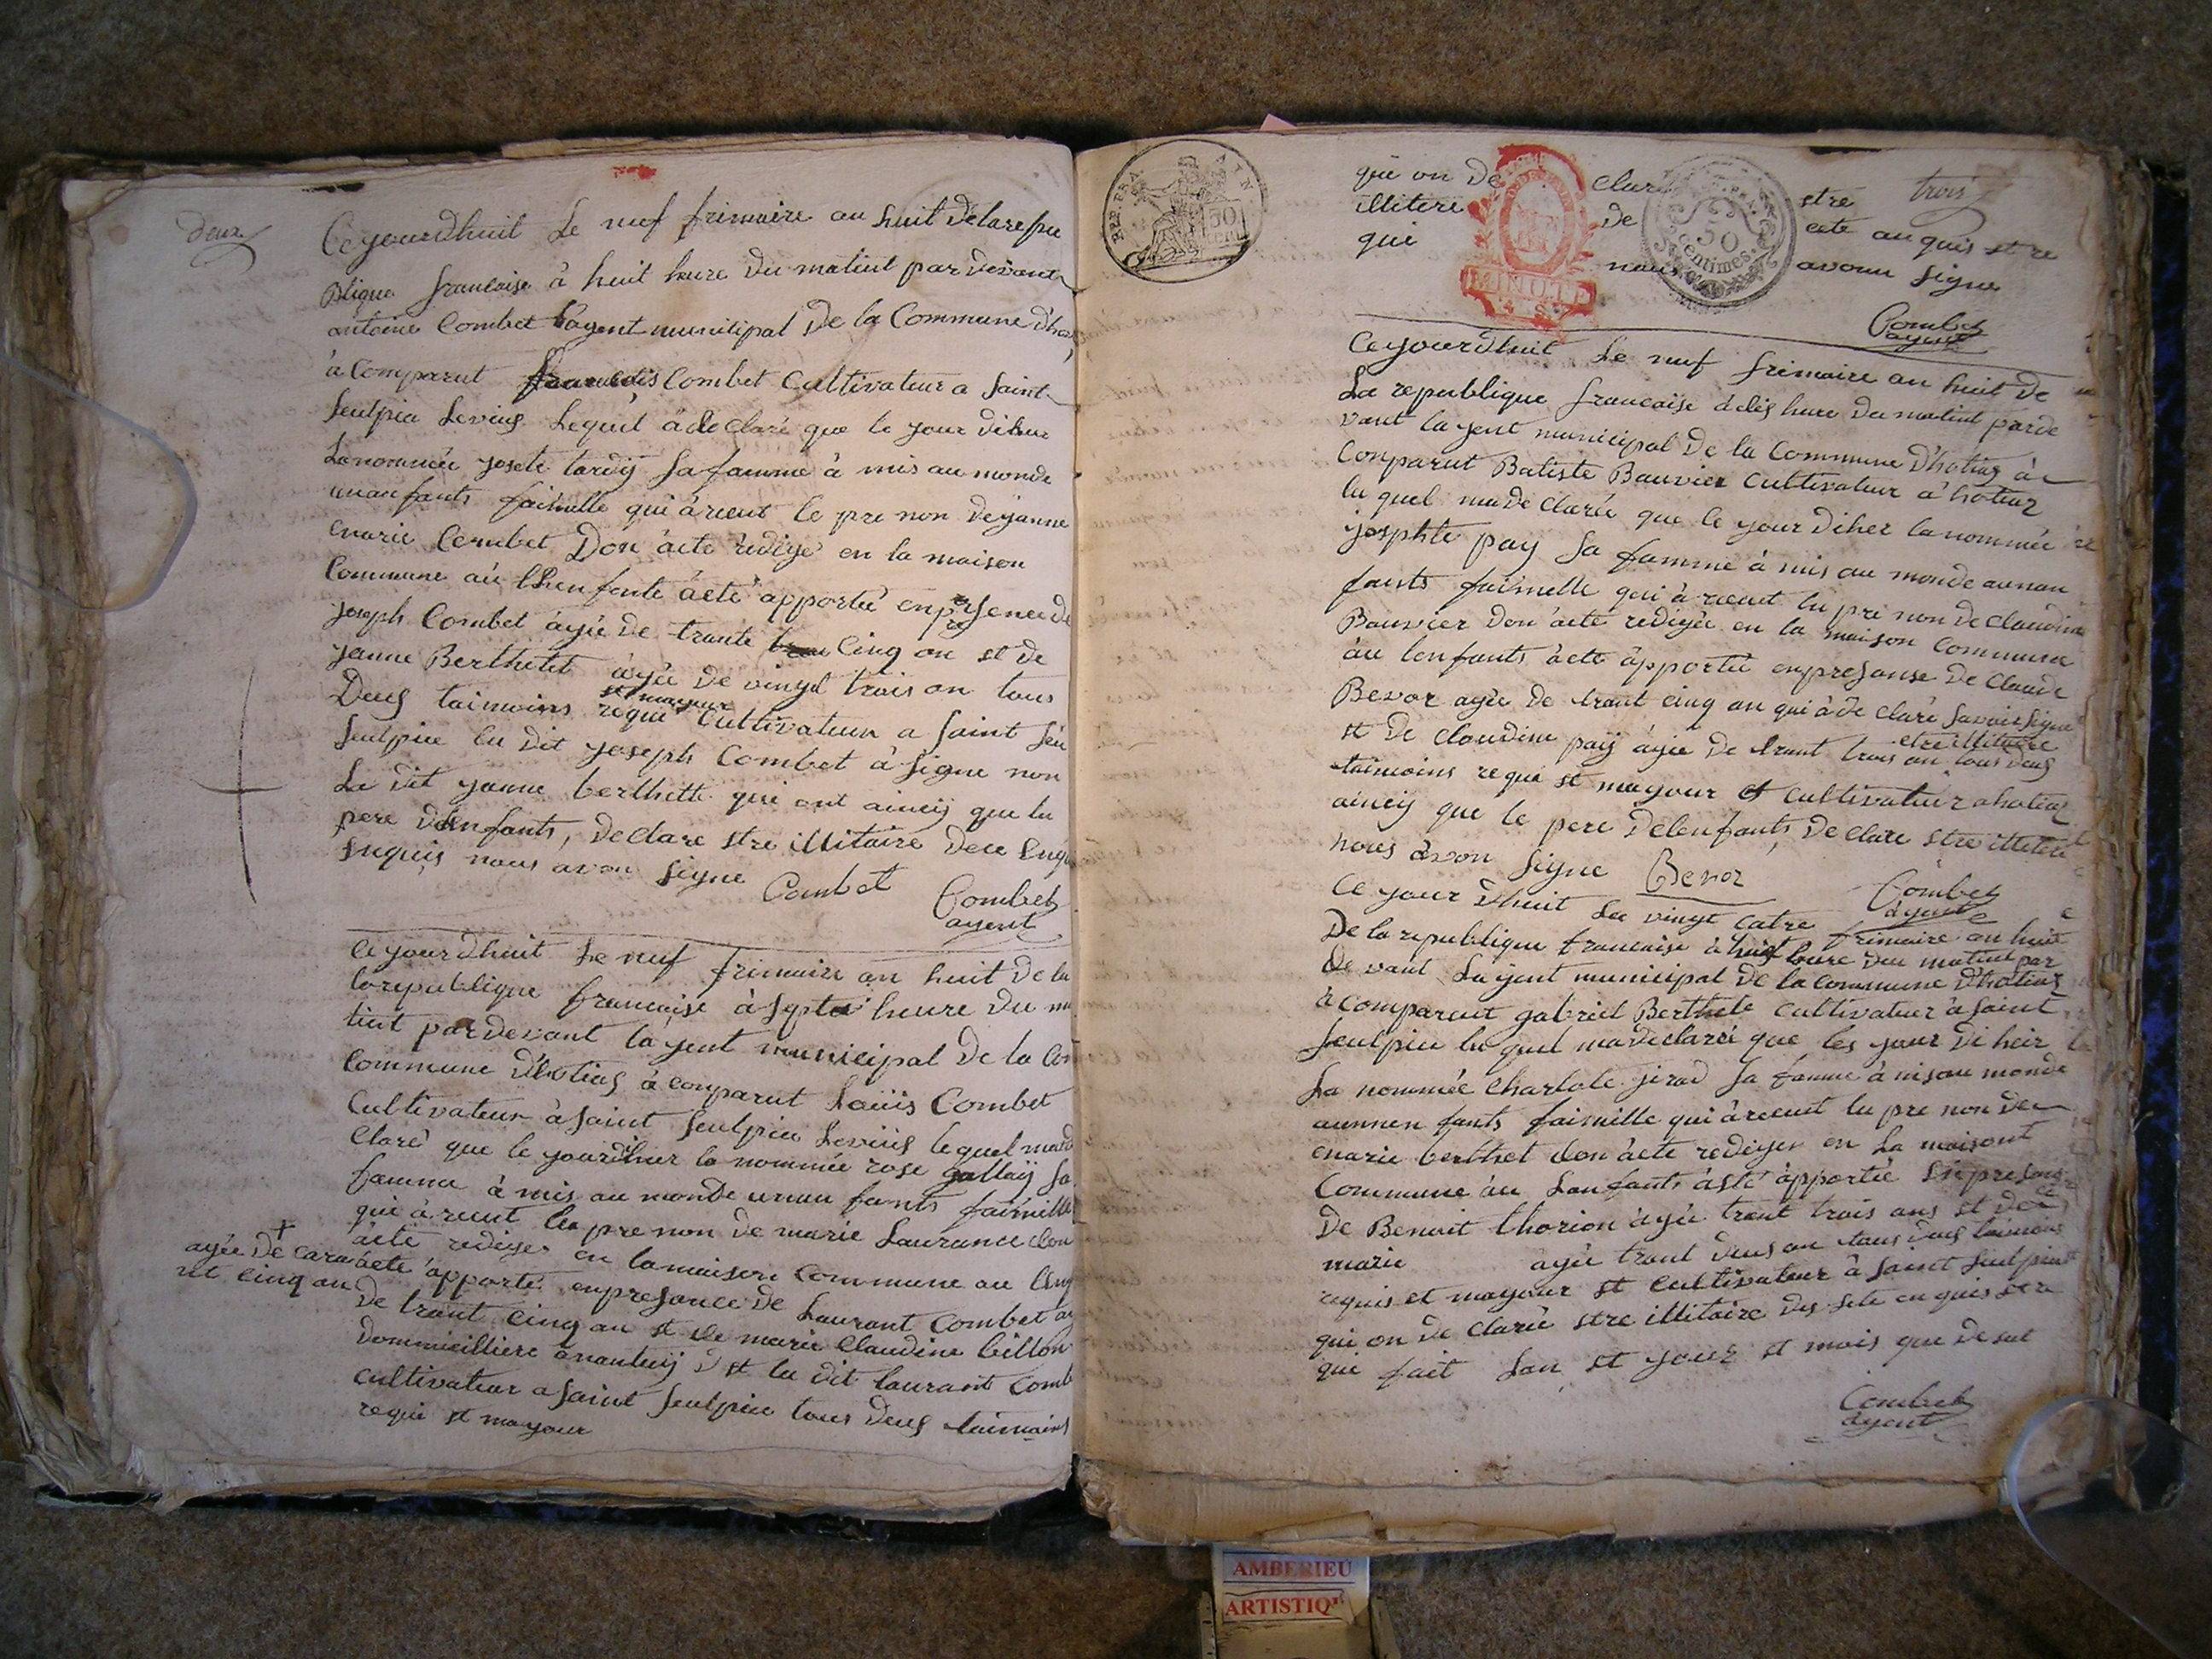 deux
Ce yourdhuit Le neuf frimaire an huit delarepu
Blique francaise à huit heure du matint par devant
antoine Combet Lagent municipal De la Commune dho
à Comparut francois Combet Cultivateur a Saint
Seulpice Levius Lequel à declaré que le jour diheur
Lanommée josete tardÿ Sa famme à mis au monde
unanfants faimelle qui à recut le pre non de janne
marie Combet Don acte redige en la maison
Commune aü lhenfante àeté apportée enpresence de
joseph Combet àyée De trante Cinq an st de
yanne Berthetet àyée De vingt trois an tous
Deux taimoins requi st mayour Cultivateur a Saint Seu
Seulpice lu dit joseph Combet à Signe non
La dit yanne berthette qui ont aincÿ que lu
pere d'enfants, declare stre illitaire dece Enqu
Enquis nous avon Signe Combet
Combet
agent
Ce yourdhuit Le neuf frimaire an huit De la
larepublique francaise à Septe heure Du ma
tint pardevant la jent municipal De la Com
Commune dhotias à comparut Loüis Combet
Cultivateur à Saint Seulpice Leviüs lequel made
Claré que le yourdiheur la nommée rose gallaÿ Sa
famme à mis au monde unan fants faimelle
qui à recut lu pre non de marie Laurance don
acte rediger en lamaison Commune au lenf
àeté apporté enpresance De Laurant Combet ay
+
ayée De cara
nt cinq an
De trant cinq an st de marie Claudine billon
dommicilliere ànantuÿ st lu dit laurant Comb
cultivateur a Saint Seulpice tous deux taimains
requi st mayour
qui on De clare stre trois
illitere De cete anquis stre
qui nous avonn Signe
Combet
agent
REP. FRA
AYN
50
CENT
MINUTE
50
Centimes
Ceyourdhuit Le neuf frimaire an huit De
La republique francaise àdix hure du matint parde
vant la jent municipal De la Commune Dhotias à
Conparut Batiste Bauvier Cultivateur à hotiaz
lu quel madeclarée que le your Diher la nommée
josphte pay Sa famme à mis au monde aunan
fants faimelle qui à recut lu pre non de claudine
Bauvier don acte redigée en la maison Commune
àu lenfants àeté àpportée enpresanse De Claude
Bevoz ayée De trant cinq an qui à de claré Savoir Signe
st De Claudine paÿ àyée de trant trois an tous deux
etre illitaire
taimoins requi st mayour st cultivateur ahotiaz
aincÿ que le pere Delenfants, De clare stre illetere
nous avon Signe Bevoz
Combet
agent
Ce your Dhuit Lu vingt catre frimaire an huit
De la republique francaise à huit heure du matint par
de vant La jent municipal de la commune dhotias
à comparut gabriel Berthete cultivateur à Saint
Seulpice lu quel madeclaré que les your di heir
La nommée Charlote jirad Sa famme à misau monde
aunnen fants faimelle qui à recut lu pre non de
marie berthet don àcte rediger en La maisont
Commune àu Lanfants àeté àpportée Enpresance
De Benoit thorion àyée trant trois ans st de
marie ayée trant deux an tous deux taimoins
requis et mayour st cultivateur à Saint Seulpice
qui on de clarée stre illitaire des sete enquis stre
qui fait Lan st your st mois que desut
Combet
agent
AMBERIEU
ARTISTIQ